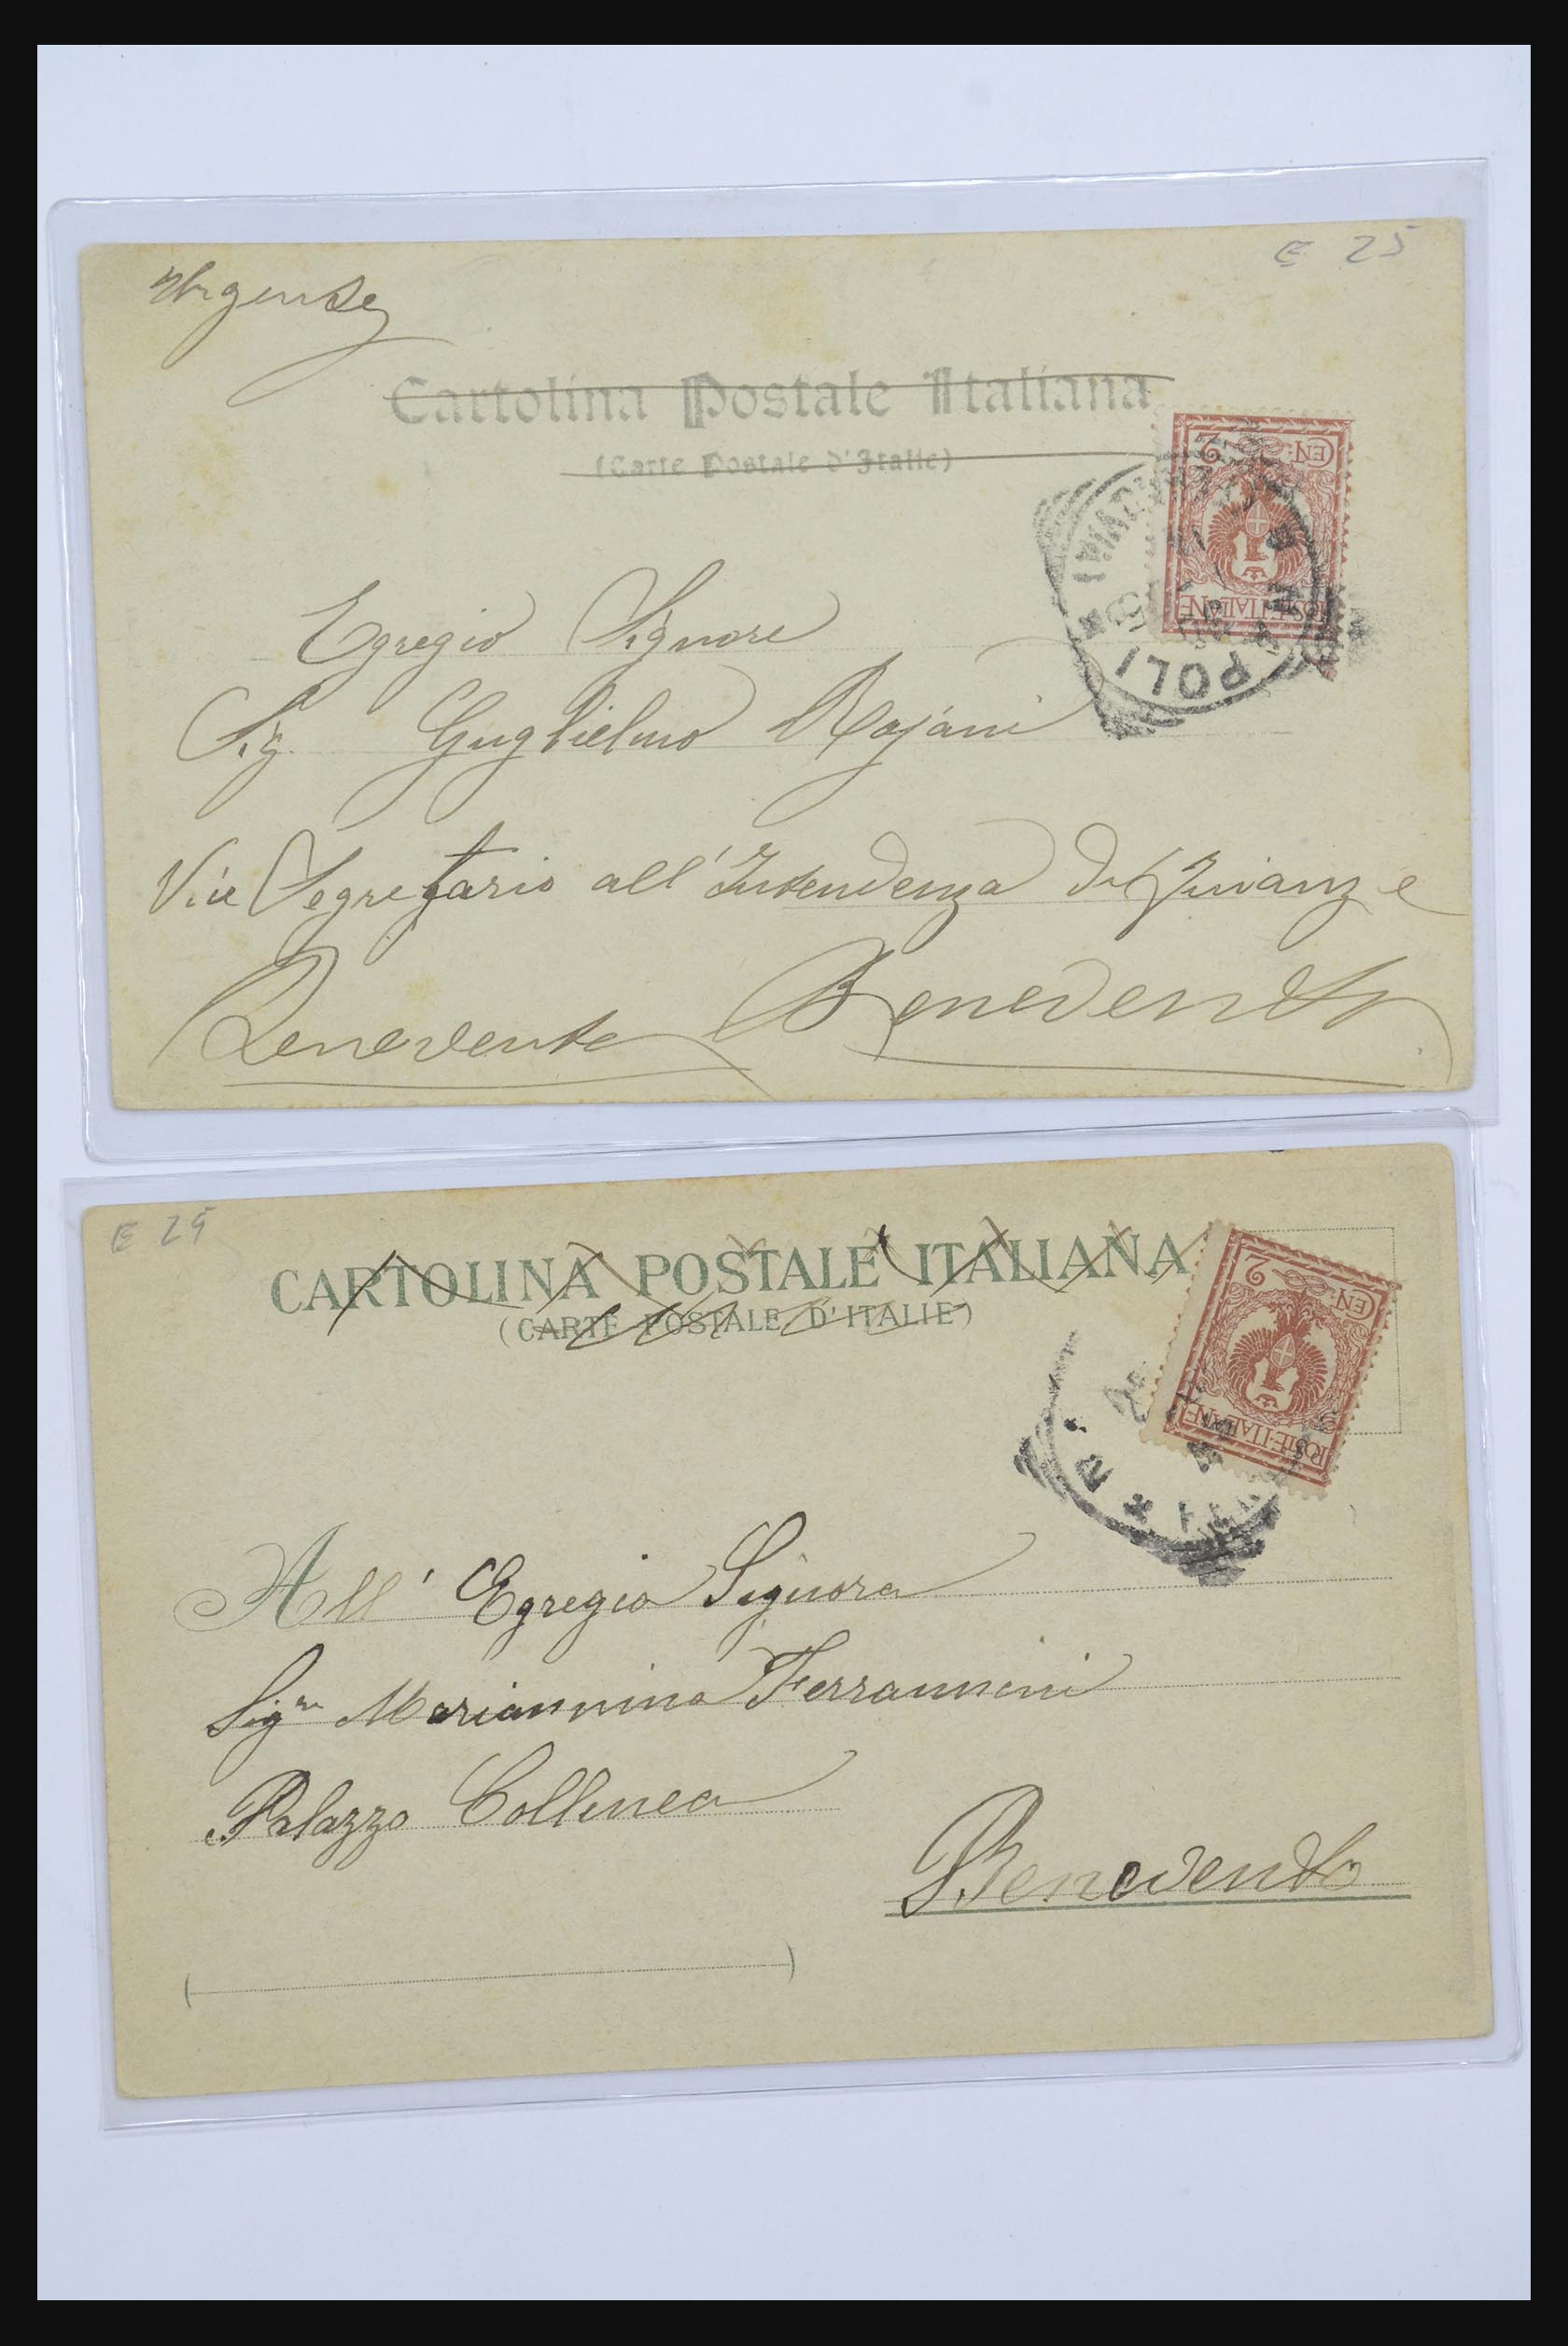 E 25
Urgente
Cartolina Postale Italiana
(Carte Postale d'Italie)
CEN. 2
POSTE·ITALIANE
NAPOLI
Egregio Signore
Sig. Guglielmo Rajani
Vice Segretario all'Intendenza di Finanze
Benevento Benevento
E 25
CARTOLINA POSTALE ITALIANA
(CARTE POSTALE D'ITALIE)
CEN. 2
POSTE·ITALIANE
All' Egregia Signora
Sigra Mariannina Ferrannini
Palazzo Collenea
Benevento